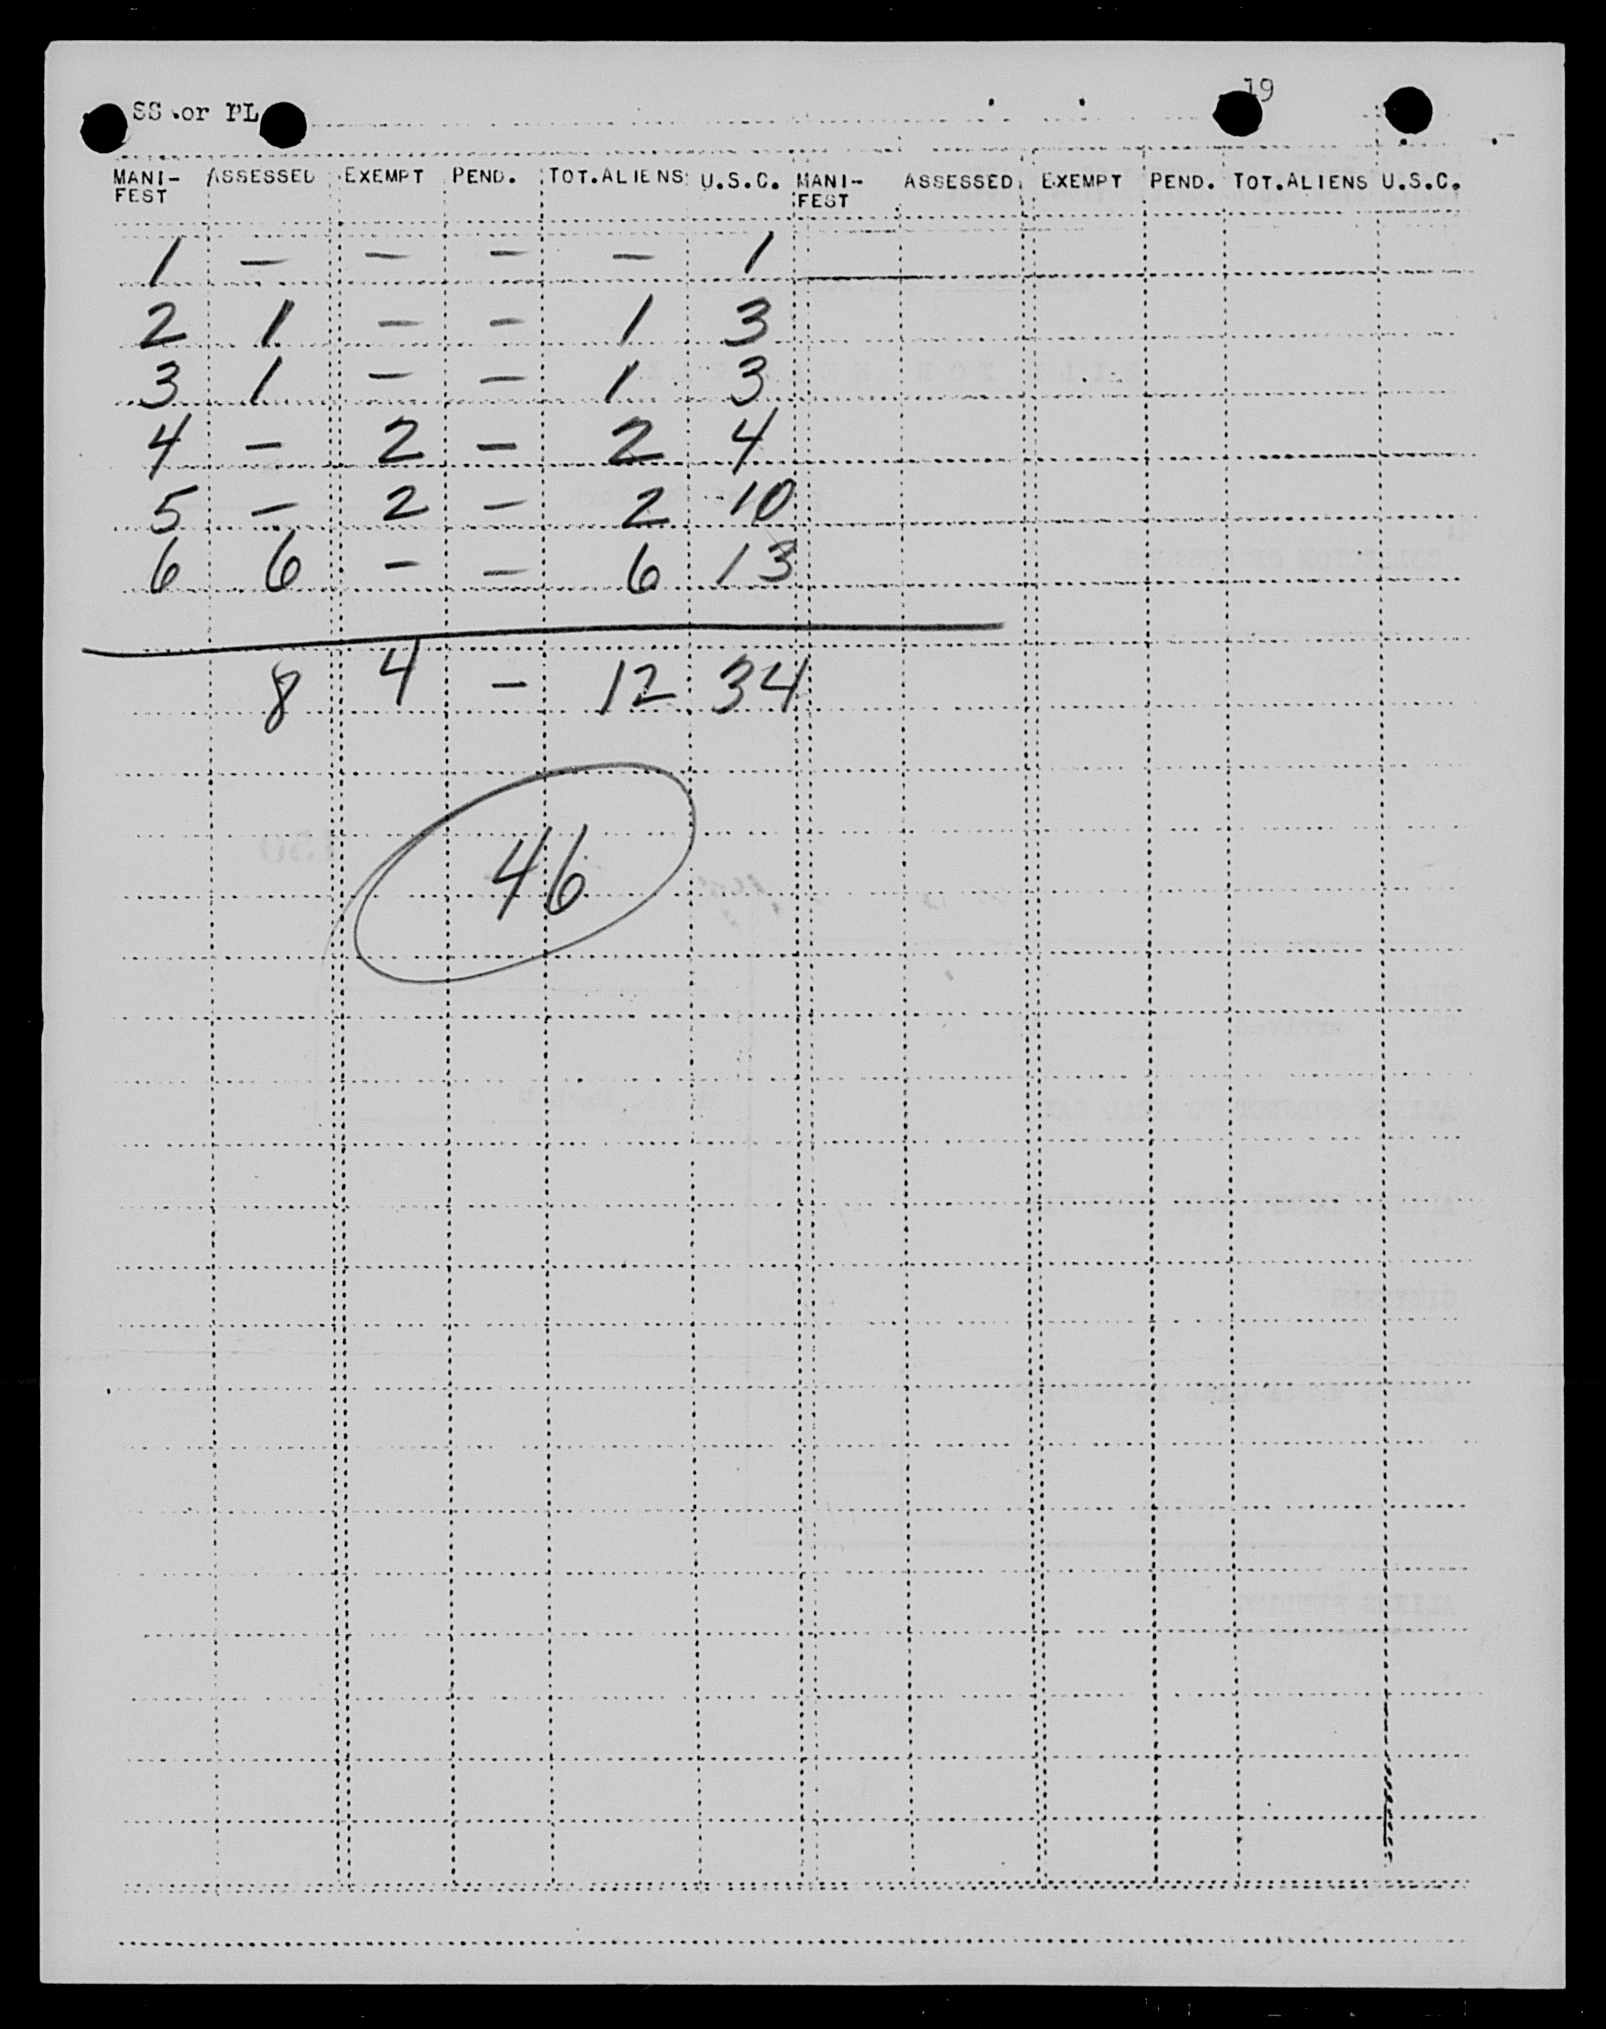 19
SS or PL
MANI- ASSESSED EXEMPT PEND. TOT.ALIENS U.S.C. MANI- ASSESSED EXEMPT PEND. TOT.ALIENS U.S.C.
FEST FEST
1 - - - - 1
2 1 - - 1 3
3 1 - - 1 3
4 - 2 - 2 4
5 - 2 - 2 10
6 6 - - 6 13
8 4 - 12 34
46